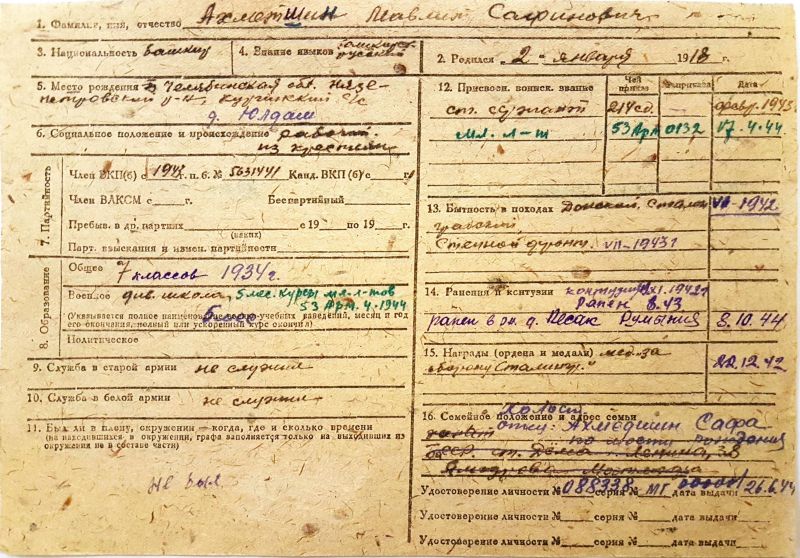 1. Фамилия, имя, отчество Ахметшин Мавлит Сафинович
3. Национальность башкир
4. Знание языков башкирск. русский
2. Родился „2" января 1918 г.
5. Место рождения Челябинская обл. Нязе-
петровский р-н, с/с
д. Юлдаш
6. Социальное положение и происхождение рабочий
из крестьян
7. Партийность
Член ВКП(б) с 1943 г. п. б. № 5631441 Канд. ВКП(б) с г.
Член ВЛКСМ с г. Беспартийный
Пребыв. в др. партиях с 19 по 19 г.
(каких)
Парт. взыскания и измен. партийности
8. Образование
Общее 7 классов 1934 г.
Военное див. школа, 5 мес. курсы мл. л-тов
53 Арм. 4. 1944
(Указывается полное наименование военно-учебных заведений, месяц и год
его окончания, полный или ускоренный курс окончил)
Политическое
9. Служба в старой армии не служил
10. Служба в белой армии не служил
11. Был ли в плену, окружении — когда, где и сколько времени
(на находившихся в окружении, графа заполняется только на выходивших из
окружения не в составе части)
не был
12. Присвоен. воинск. звание
Чей приказ
№ приказа
Дата
ст. сержант 214 сд. — февр. 1943
Мл. л-т 53 Арм 0132 17. 4. 44
13. Бытность в походах Донской, Сталин
градский VII-1942
Степной фронт. VII-1943 г
14. Ранения и контузии контузия XI. 1942 г
Ранен 8.43
ранен в р-н. д. Песак Румыния 8. 10. 44
15. Награды (ордена и медали) мед. „за
оборону Сталингр." 22.12.42
16. Семейное положение и адрес семьи
Холост
отец: Ахмедшин Сафа
по месту рождения
ст. Дема Ленина, 38
Удостоверение личности № 088338 серия № МГ 000001 дата выдачи 26.6.44
Удостоверение личности № серия № дата выдачи
Удостоверение личности № серия № дата выдачи